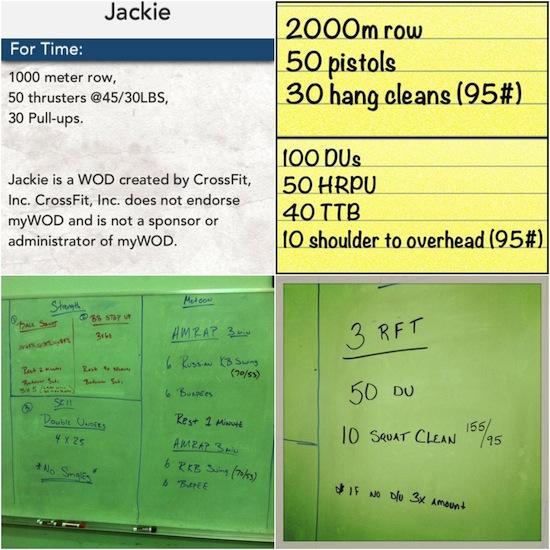 Jackie
For Time:
1000 meter row,
50 thrusters @45/30LBS,
30 Pull-ups.
Jackie is a WOD created by CrossFit,
Inc. CrossFit, Inc. does not endorse
myWOD and is not a sponsor or
administrator of myWOD.
2000m row
50 pistols
30 hang cleans (95#)
100 DUs
50 HRPU
40 TTB
10 shoulder to overhead (95#)
Strength
① Back Squat
Rest 2 minutes
Between Sets
② BB Step Up
3x6
Between Sets
③ Skill
Double Unders
4 x 25
*No Singles*
Metcon
AMRAP 3min
6 Russian KB Swing
(70/53)
6 Burpees
Rest 1 Minute
AMRAP 3min
6 RKB Swing (70/53)
6 Burpee
3 RFT
50 DU
10 Squat Clean 155/95
* If no D/U 3x amount